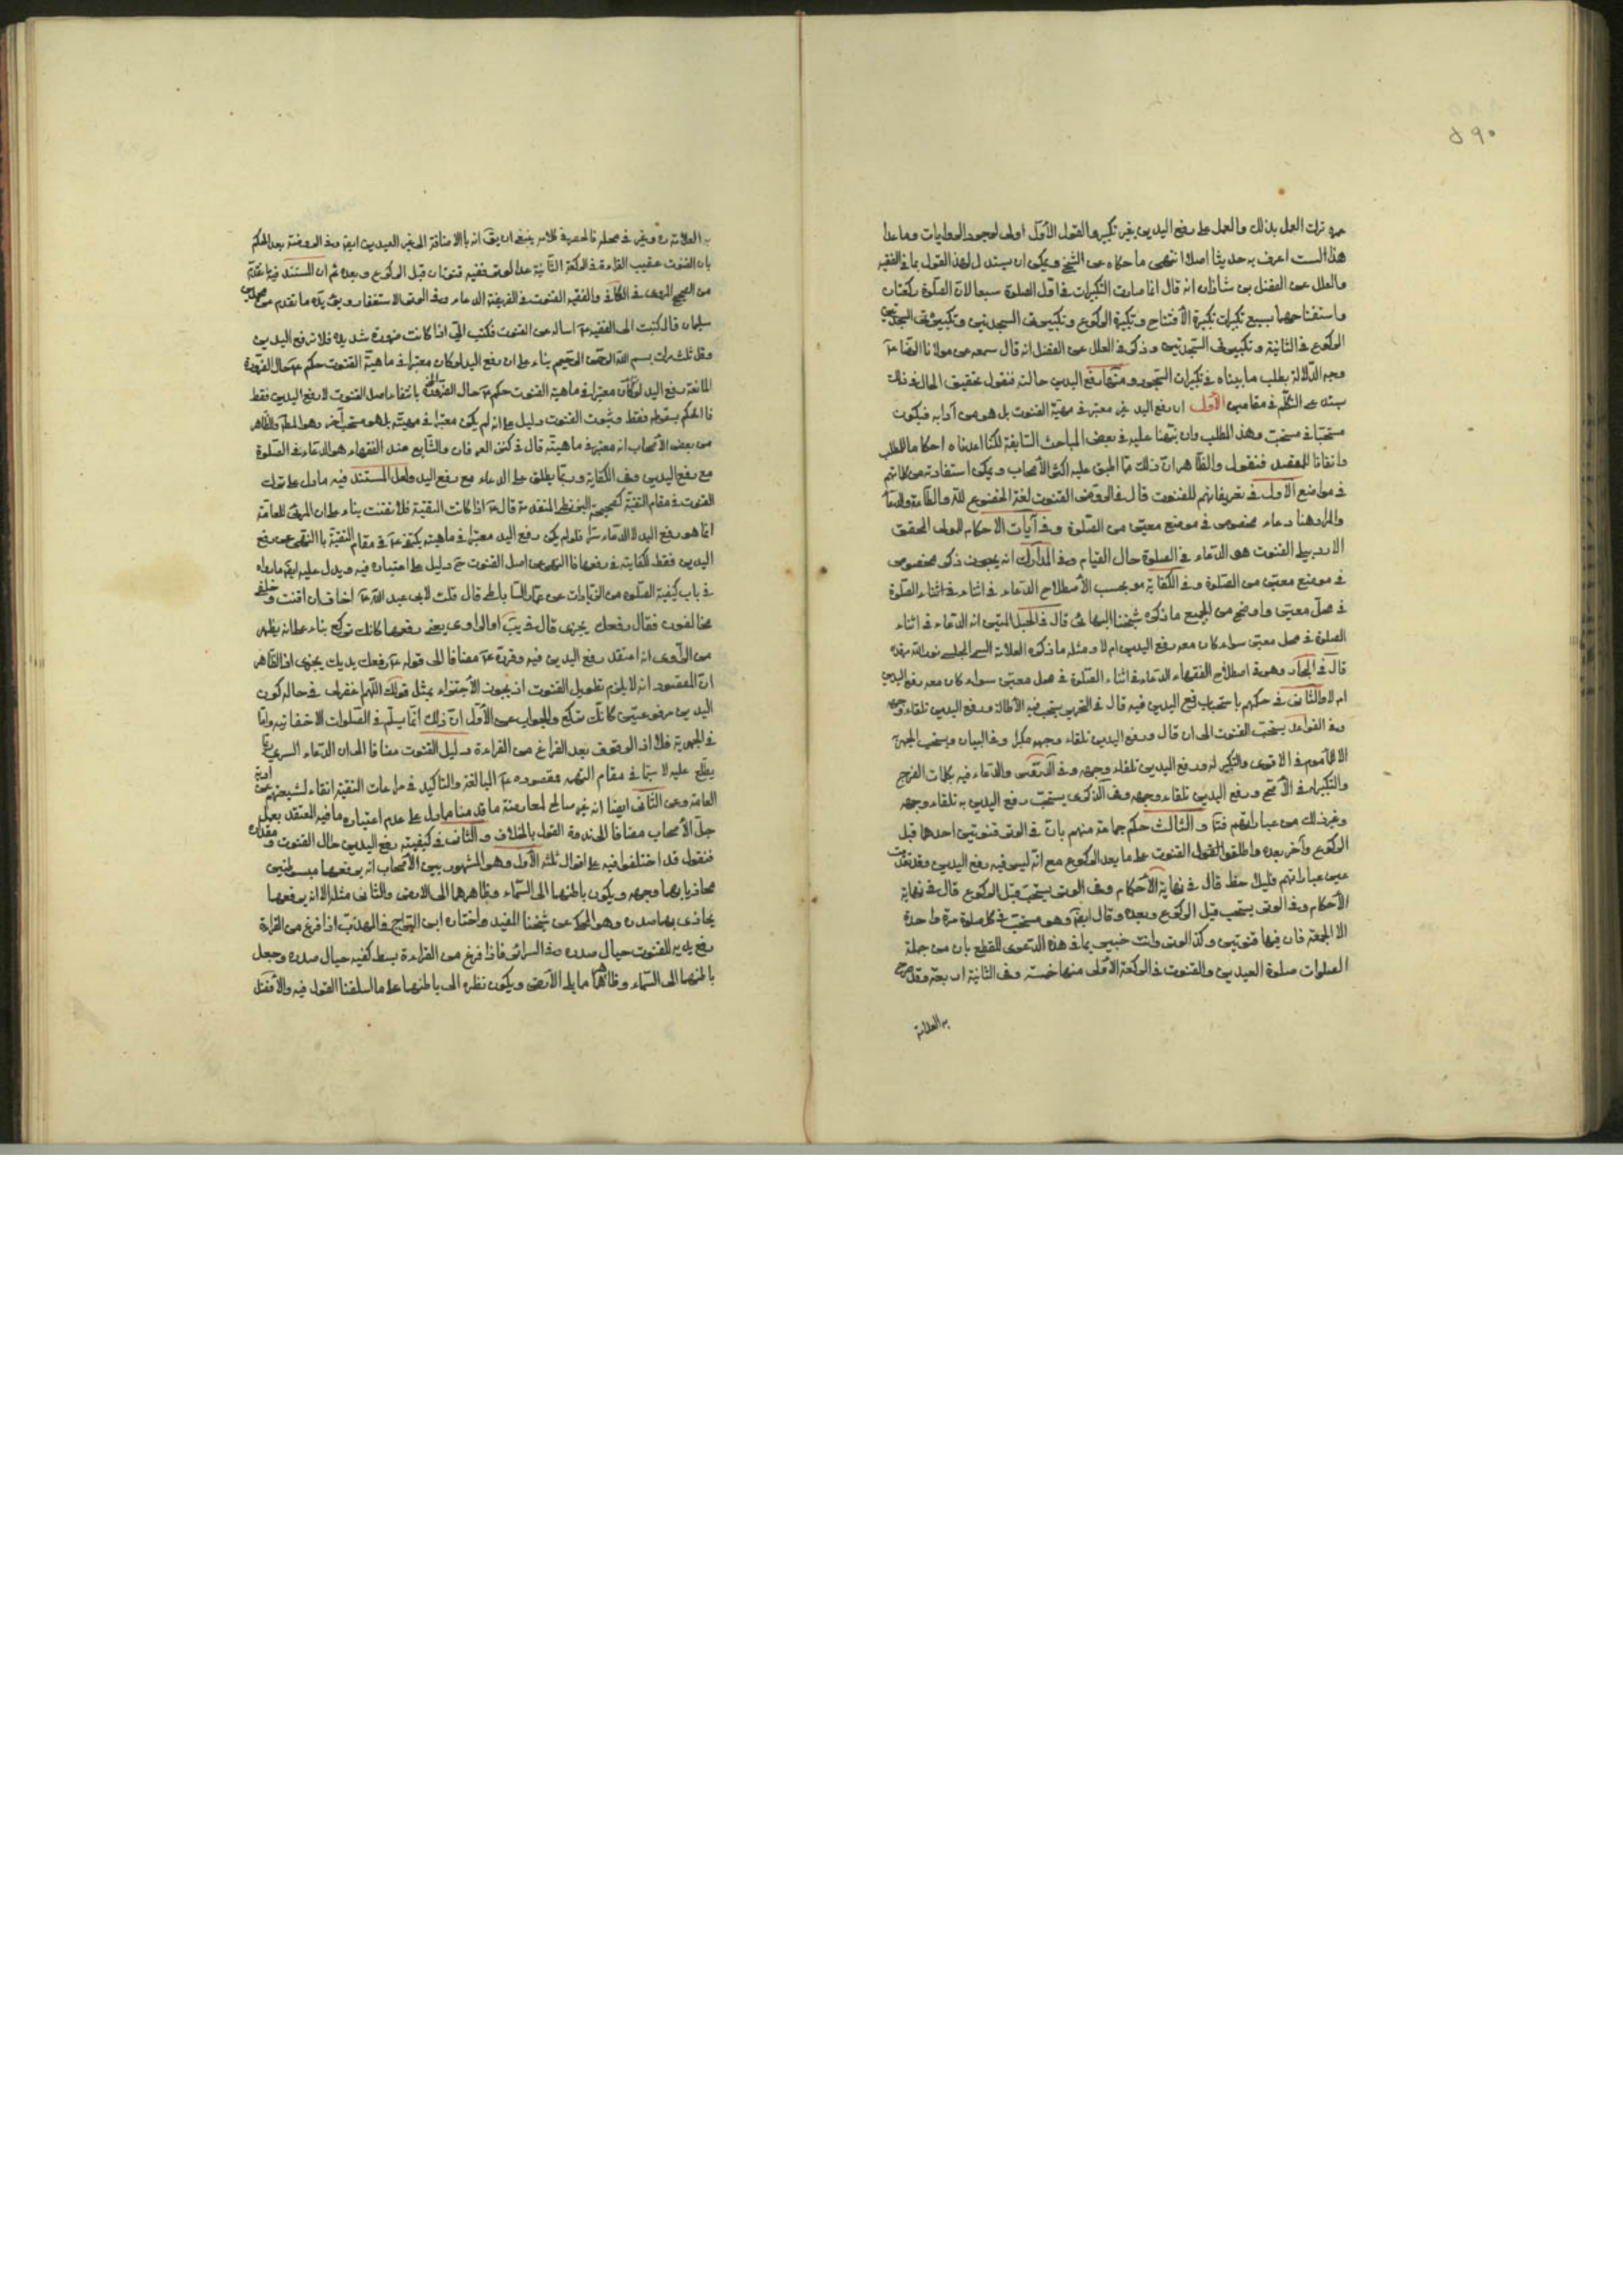 ٥٩٠
ترك العمل بذلك والعمل على رفع اليدين بغير تكبير والقول الأول اولى لوجود الروايات وما عدا
هذا لست اعرف به حديثا اصلا انتهى ما حكاه عن الشيخ ويمكن ان يستدل لهذا القول بما في الفقيه
والعلل عن الفضل بن شاذان انه قال انما صارت التكبيرات في اول الصلوة سبعا لان الصلوة ركعتان
واستفتاحها بسبع تكبيرات تكبيرة الافتتاح وتكبيرة الركوع وتكبيرتي السجدتين وتكبيرة
الركوع في الثانية وتكبيرتي السجدتين وذكر في العلل عن الفضل انه قال سمعه من مولانا الرضا ع
وجه الدلالة يطلب ما بيناه في تكبيرات السجود ومنها رفع اليدين حالته فنقول تحقيق الحال في ذلك
يستدعي التكلم في مقامين الأول ان رفع اليد غير معتبر في مهية القنوت بل هو من آدابه فيكون
مستحبا في مستحب وهذا المطلب وان نبهنا عليه في بعض المباحث السابقة لكنا اعدناه احكاما للمطلب
واتقانا للمقصد فنقول والظاهر ان ذلك مما اطبق عليه اكثر الأصحاب ويمكن استفادته من كلماتهم
في مواضع الاول في تعريفاتهم للقنوت قال في الروض القنوت لغة الخضوع لله والطاعة والدعاء
والمراد هنا دعاء مخصوص في موضع معين من الصلوة وفي آيات الاحكام للمولى المحقق
الاردبيلي القنوت هو الدعاء في الصلوة حال القيام وفي المدارك انه ذكر مخصوص
في موضع معين من الصلوة وفي الكفاية هو بحسب الأصطلاح الدعاء في اثناء الصلوة
في محل معين واوضح من الجميع ما ذكره شيخنا البهائي قال في الحبل المتين انه الدعاء في اثناء
الصلوة في محل معين سواء كان معه رفع اليدين ام لا ومثله ما ذكره العلامة المجلسي نور الله مرقده
قال في البحار وهو في اصطلاح الفقهاء الدعاء في اثناء الصلوة في محل معين سواء كان معه رفع اليدين
ام لا والثاني في حكمهم باستحباب رفع اليدين فيه قال في التحرير يستحب فيه الأطالة ورفع اليدين تلقاء وجهه
وفي القواعد يستحب القنوت الى ان قال ورفع اليدين تلقاء وجهه مكبرا وفي البيان ويستحب الجهر
الا للمأموم في الاقوى والتكبير له ورفع اليدين تلقاء وجهه وفي الدروس والدعاء فيه بكلمات الفرج
والتكبير له في الأصح ورفع اليدين تلقاء وجهه وفي الذكرى يستحب رفع اليدين به تلقاء وجهه
وغير ذلك من عباراتهم والثالث حكم جماعة منهم بان في الوتر قنوتين احدهما قبل
الركوع وآخر بعده واطلقوا القنوت على ما بعد الركوع مع انه ليس فيه رفع اليدين وقد تقدمت
عين عباراتهم فليلاحظ قال في نهاية الأحكام وفي الوتر يستحب قبل الركوع قال في نهاية
الأحكام وفي الوتر يستحب قبل الركوع وبعده وقال ايضا وهو مستحب في كل صلوة مرة واحدة
الا الجمعة فان فيها قنوتين وكذا الوتر وانت خبير بما في هذه الدعوى للقطع بان من جملة
الصلوات صلوة العيدين والقنوت في الركعة الأولى منها خمسة وفي الثانية اربعة وقد صرح
به العلامة
به العلامة ره وغيره في محله فالحصر في كلامه ينبغي ان يق انه بالاضافة الى غير العيدين ايضا وفي الروضة بعد الحكم
بان القنوت عقيب القراءة في الركعة الثانية عدا الوتر ففيه قنوتان قبل الركوع وبعده ثم ان المستند فيما تقدم
من الصحيح المروي في الكافي والفقيه القنوت في الفريضة الدعاء وفي الوتر الاستغفار ويؤيده ما تقدم عن محمد بن
سليمان قال كتبت الى الفقيه ع اساله عن القنوت فكتب الي اذا كانت ضرورة شديدة فلا ترفع اليدين
وقل ثلث مرات بسم الله الرحمن الرحيم بناء على ان رفع اليد لو كان معتبرا في ماهية القنوت حكم ع حال الضرورة
المانعة رفع اليد لو كان معتبرا في ماهية القنوت حكم ع حال الضرورة بانتفاء اصل القنوت لا رفع اليدين فقط
فالحكم بسقوطه فقط وثبوت القنوت دليل على انه لم يكن معتبرا في مهيته بل هو مستحب آخر وهو المطلوب والظاهر
من بعض الأصحاب انه معتبر في ماهيته قال في كنز العرفان والشايع عند الفقهاء هو الدعاء في الصلوة
مع رفع اليدين وفي الكفاية وربما يطلق على الدعاء مع رفع اليد ولعل المستند فيه ما دل على ترك
القنوت في مقام التقية كصحيحة البزنطي المتقدمة قال ع اذا كانت التقية فلا تقنت بناء على ان المرئي للعامة
انما هو رفع اليد لا الدعاء سرا فلو لم يكن رفع اليد معتبرا في ماهيته يكتفي ع في مقام التقية بالنهي عن رفع
اليدين فقط لكفايته في رفعها فالنهي عن اصل القنوت ح دليل على اعتباره فيه ويدل عليه ايضا ما رواه
في باب كيفية الصلوة من الزيادات عن عمار الساباطي قال قلت لابي عبد الله ع اخاف ان اقنت وخلفي
مخالفون فقال رفعك يجزي قال في يب او الراوي يعني رفعهما كانك تركع بناء على انه يظهر
من الراوي انه اعتقد رفع اليدين فيه وقرره ع مضافا الى قوله ع رفعك يديك يجزي اذ الظاهر
ان المقصود انه لا يلزم تطويل القنوت اذ يجوز الأجتزاء بمثل قولك اللهم اغفر لي في حالة كون
اليدين مرفوعتين كانك تركع والجواب عن الأول ان ذلك انما يسلم في الصلوات الاخفاتيه واما
في الجهرية فلا اذ الوقوف بعد الفراغ من القراءة دليل القنوت مضافا الى ان الدعاء السري ربما
يطلع عليه لا سيما في مقام التهمة فمقصوده ع المبالغة والتاكيد في مراعات التقية اتقاء لشيعتهم
العامة وعن الثاني ايضا انه غير صالح لمعارضة ما قدمنا مما دل على عدم اعتباره فيه المعتضد بعمل
جل الأصحاب مضافا الى ندرة القول بالخلاف والثاني في كيفية رفع اليدين حال القنوت ومقداره
فنقول قد اختلفوا فيه على اقوال ثلثة الأول وهو المشهور بين الأصحاب انه يرفعهما مبسوطتين
محاذيا بهما وجهه ويكون باطنهما الى السماء وظاهرهما الى الارض والثاني مثله الا انه يرفعهما
يحاذي بهما صدره وهو المحكي عن شيخنا المفيد واختاره ابن البراج في المهذب اذا فرغ من القراءة
رفع يديه للقنوت حيال صدره وفي السرائر فاذا فرغ من القراءة بسط كفيه حيال صدره وجعل
باطنهما الى السماء وظاهرهما ما يلي الأرض ويكون نظره الى باطنهما على ما اسلفنا القول فيه والأفضل